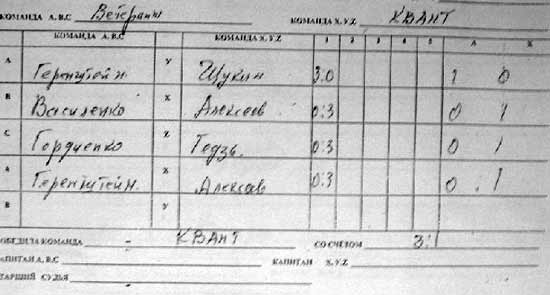 КОМАНДА А,В,С Ветераны КОМАНДА X,Y,Z КВАНТ
КОМАНДА А,В,С КОМАНДА X,Y,Z 1 2 3 4 5 А X
А Y Щукин 3:0 1 0
В Василенко X Алексеев 0:3 0 1
С Гордиенко Z Гедзь. 0:3 0 1
А X Алексеев 0:3 0.1
В Y
ОБЕДИЛА КОМАНДА - КВАНТ СО СЧЕТОМ 3:1
АПИТАН А,В,С КАПИТАН X,Y,Z
ТАРШИЙ СУДЬЯ